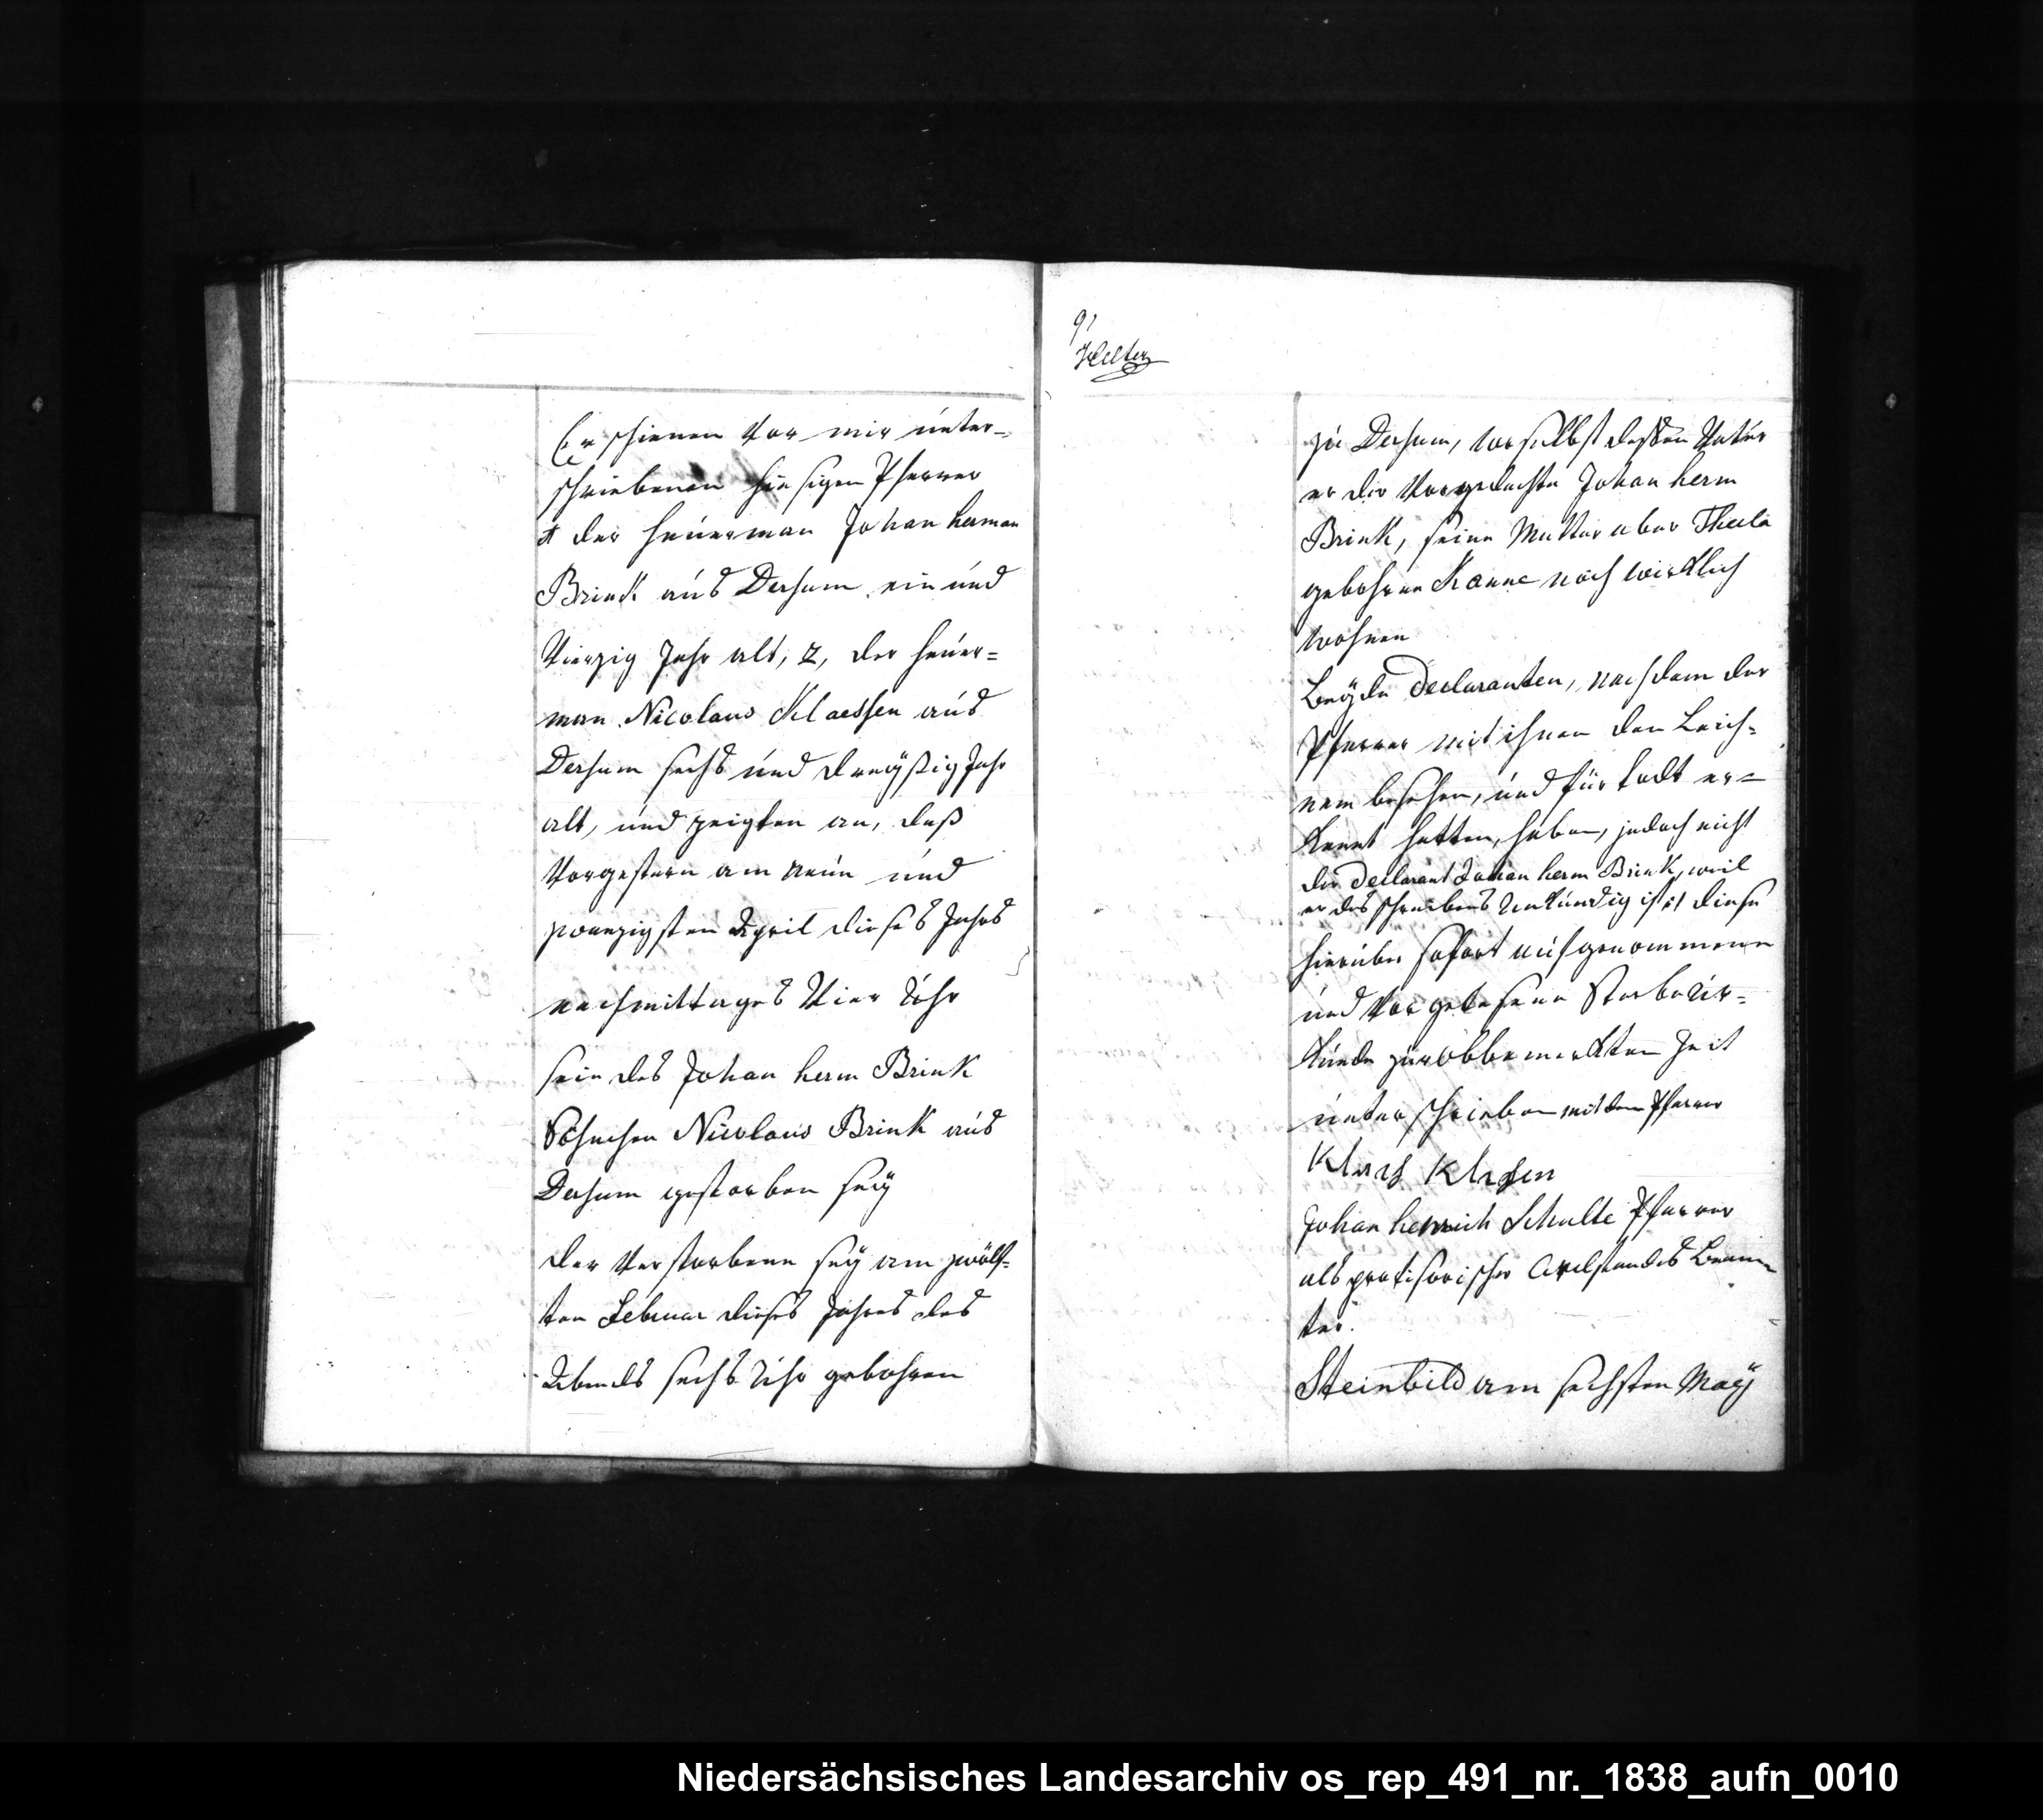 Erschienen vor mir unter-
schriebenen hiesigen Pfarrer
1 der Heuerman Johan Herman
Brink aus Dersum ein und
Vierzig Jahr alt, 2, der Heuer=
man Nicolaus Klaessen aus
Dersum sechs und dreÿßig Jahr
alt, und zeigten an, daß
Vorgestern am neun und
zwanzigsten April dieses Jahrs
nachmittages Vier Uhr
sein des Johan Herm Brink
Söhnchen Nicolaus Brink aus
Dersum gestorben seÿ
der Verstorbene seÿ am zwölf=
ten Februar dieses Jahres des
Abends sechs Uhr gebohren
9
zu Dersum, woselbst dessen Vater
er der Vorgedachte Johan Herm
Brink, seine Mutter aber Thecla
gebohrne Kanne noch wirklich
wohnen
Beÿde Declaranten, nachdem der
Pfarrer mit ihnen den Leich=
nam besehen, und für todt er=
kennt hatten, haben, jedoch nicht
der Declarant Johan Herm Brink, weil
er des schreibens Unkundig ist diese
hierüber sofort aufgenommene
und vorgelesene Sterbe Ur=
kunde zur obbemerkten Zeit
unterschrieben mit dem Pfarrer
Klaas Klasen
Johan Henrich Schulte Pfarrer
als provisorischer Civilstandes Beam
ter.
Steinbild am sechsten Maÿ
Niedersächsisches Landesarchiv os_rep_491_nr._1838_aufn_0010